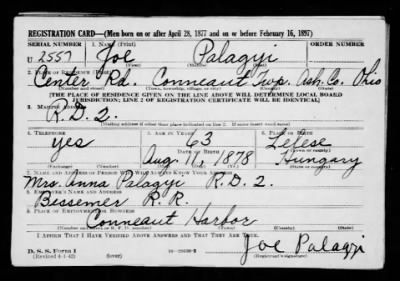 REGISTRATION CARD—(Men born on or after April 28, 1877 and on or before February 16, 1897)
SERIAL NUMBER 1. NAME (Print) ORDER NUMBER
U 2557 Joe Palagyi
2. PLACE OF RESIDENCE (Print)
Center Rd. Conneaut Twp. Ash. Co. Ohio
[THE PLACE OF RESIDENCE GIVEN ON THE LINE ABOVE WILL DETERMINE LOCAL BOARD
JURISDICTION; LINE 2 OF REGISTRATION CERTIFICATE WILL BE IDENTICAL]
3. MAILING ADDRESS
R.D.2.
[Mailing address if other than place indicated on line 2. If same insert word same]
4. TELEPHONE 5. AGE IN YEARS 6. PLACE OF BIRTH
yes 63 Lelese
DATE OF BIRTH
Aug. 11, 1878 Hungary
7. NAME AND ADDRESS OF PERSON WHO WILL ALWAYS KNOW YOUR ADDRESS
Mrs. Anna Palagyi R.D.2.
8. EMPLOYER'S NAME AND ADDRESS
Bessemer R.R.
9. PLACE OF EMPLOYMENT OR BUSINESS
Conneaut Harbor
I AFFIRM THAT I HAVE VERIFIED ABOVE ANSWERS AND THAT THEY ARE TRUE.
D. S. S. Form 1
(Revised 4-1-42) (over)
Joe Palagyi